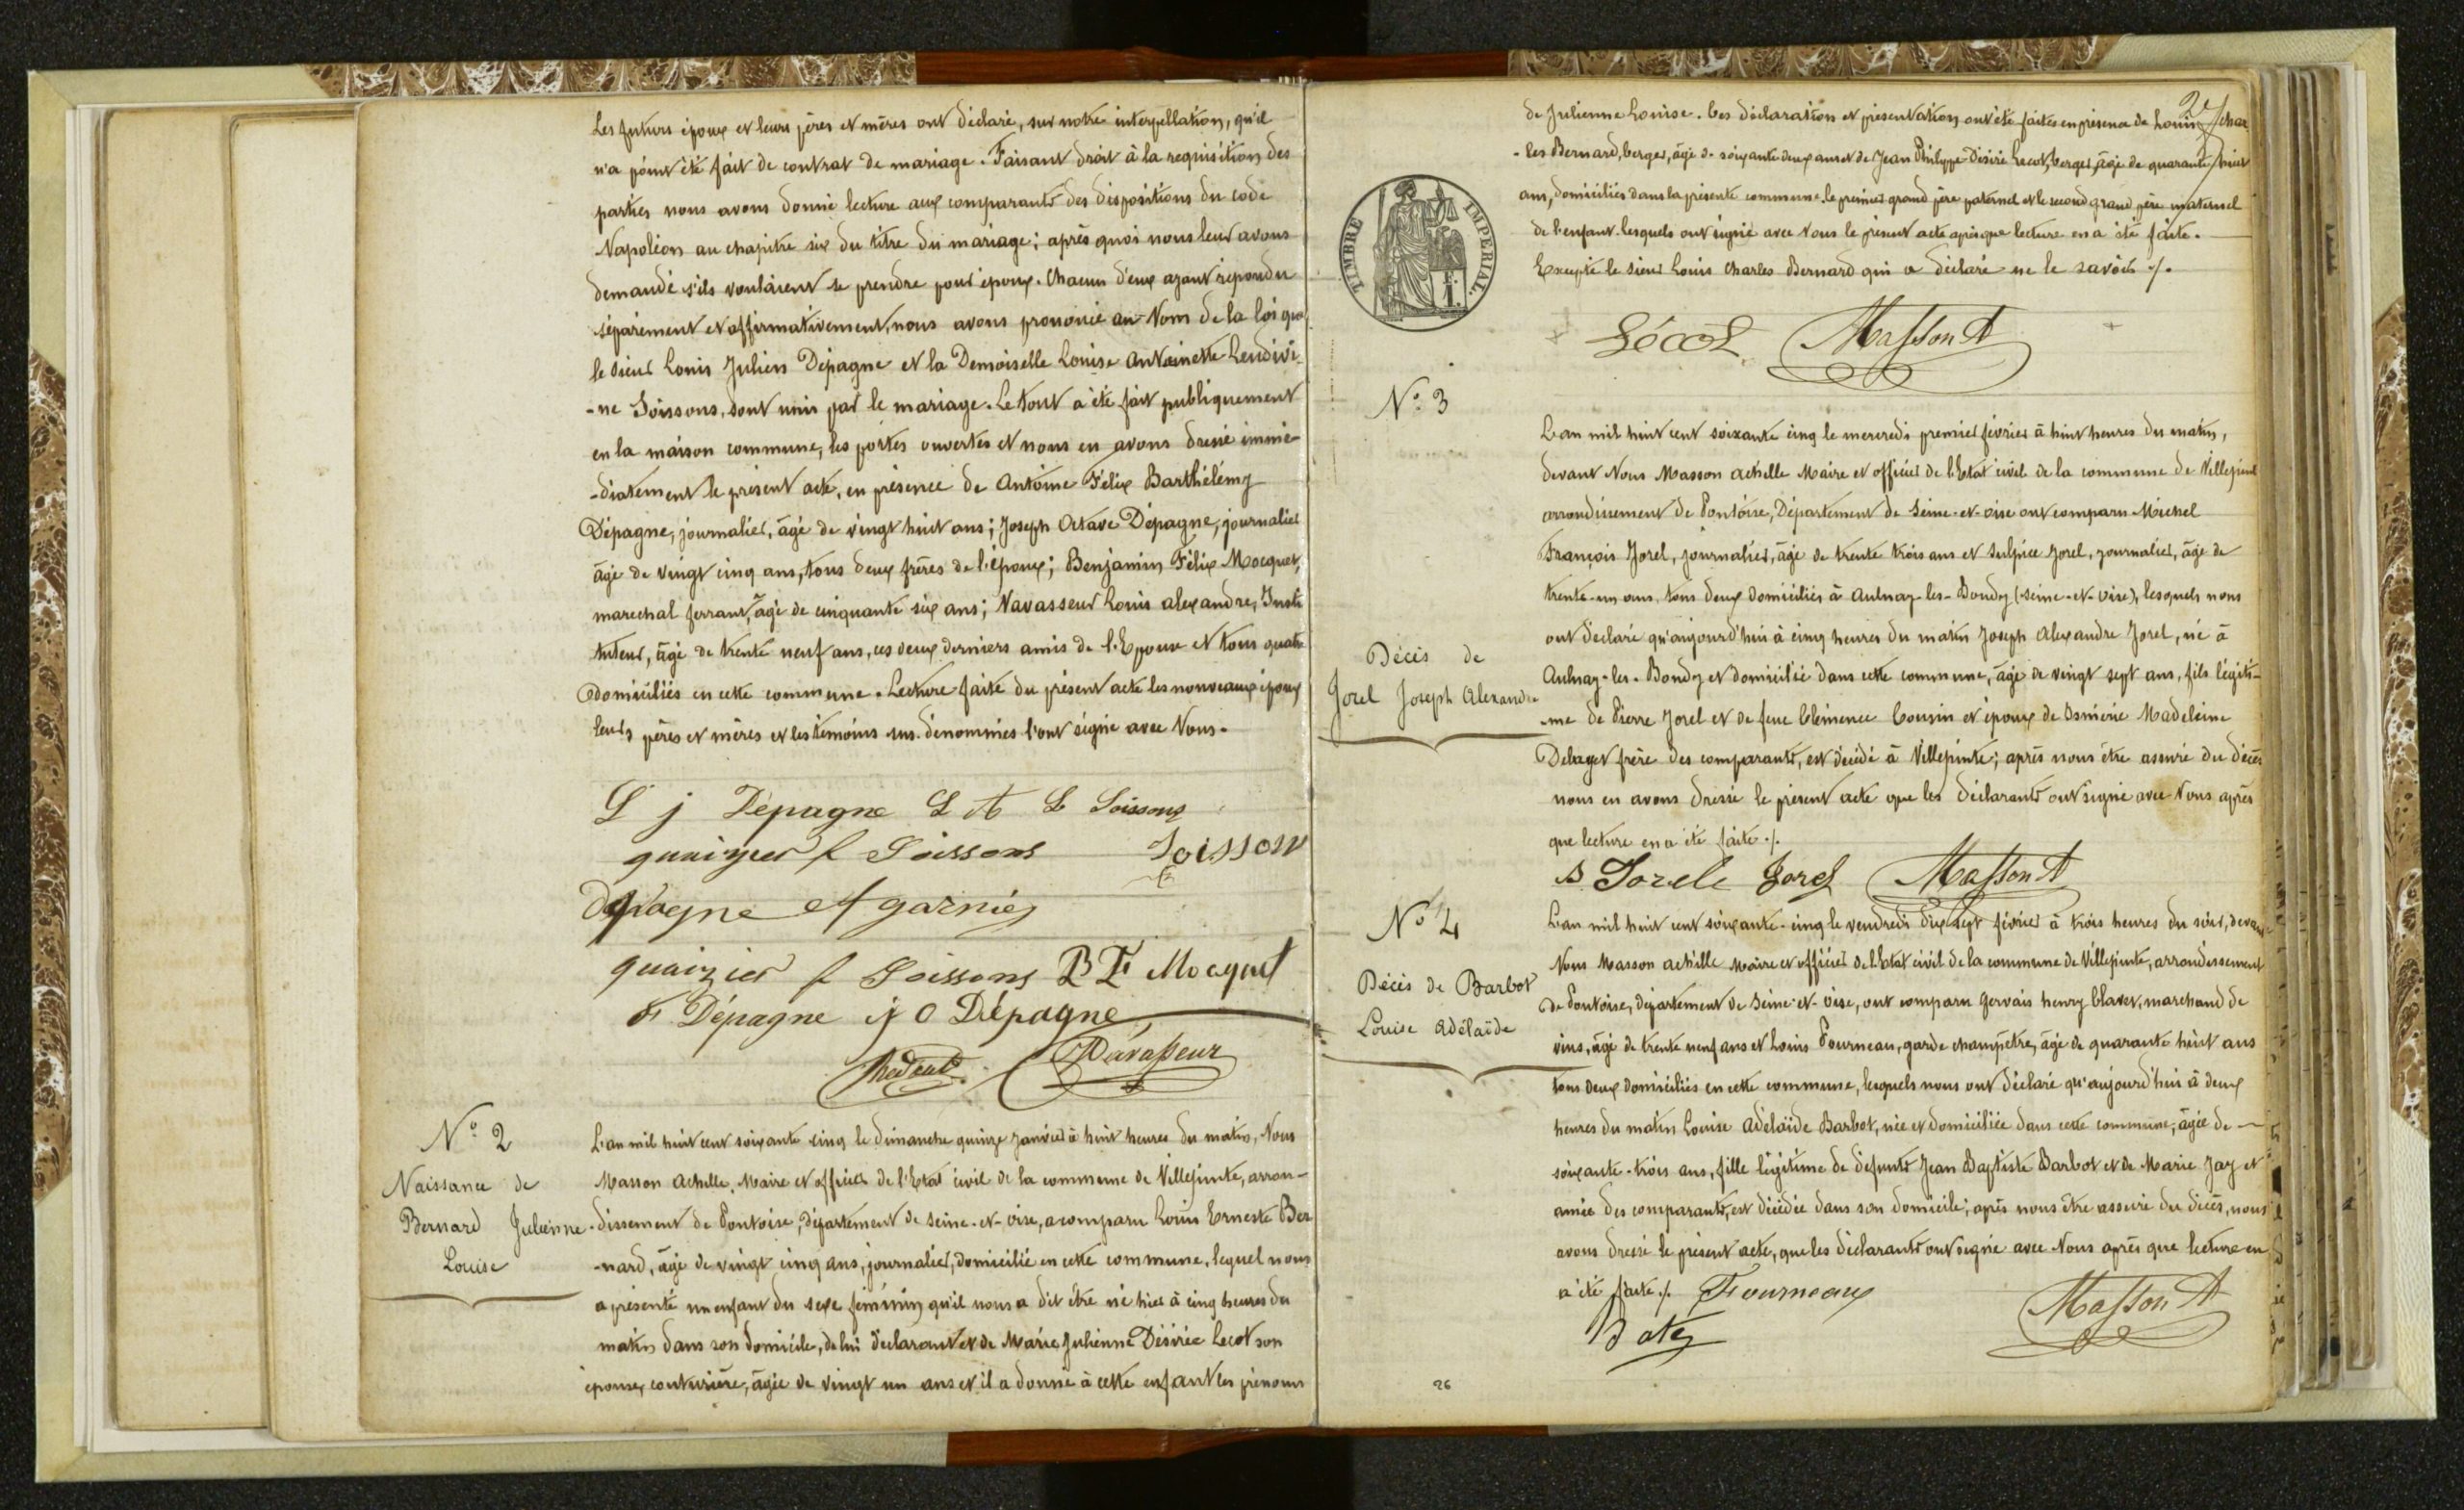 Les futurs époux et leurs pères et mères ont déclaré, sur notre interpellation, qu'il
n'a point été fait de contrat de mariage. Faisant droit à la requisition des
parties nous avons donné lecture aux comparants des dispositions du code
Napoléon au chapitre six du titre du mariage; après quoi nous leur avons
demandé s'ils voulaient se prendre pour époux. Chacun d'eux ayant répondu
séparément et affirmativement, nous avons prononcé au Nom de la loi que
le sieur Louis Julien Dépagne et la Demoiselle Louise Antoinette
-ne Soissons, sont unis par le mariage. Le tout a été fait publiquement
en la maison commune, les portes ouvertes et nous en avons dressé immé-
-diatement le présent acte, en présence de Antoine Félix Barthélémy
Dépagne, journalier, âgé de vingt huit ans; Joseph Octave Dépagne, journalier
âgé de vingt cinq ans, tous deux frères de l'époux; Benjamin Félix Mocquet,
marechal ferrant, âgé de cinquante six ans; Navasseur Louis alexandre, Insti
tuteur, âgé de trente neuf ans, ces deux derniers amis de l'Epouse et tous quatre
domiciliés en cette commune. Lecture faite du présent acte les nouveaux époux
leurs pères et mères et les témoins sus-dénommés l'ont signé avec Nous.
L j Dépagne L A L Soissons
f Soissons Soisson
Depagne garnier
f Soissons B F Mocquet
F. Dépagne j O Dépagne
Navasseur
N° 2
Naissance de
Bernard Julienne
Louise
L'an mil huit cent soixante cinq le dimanche quinze janvier à huit heures du matin, Nous
Masson Achille, Maire et officier de l'Etat civil de la commune de Villepinte, arron-
-dissement de Pontoise, département de Seine-et-oise, a comparu Louis Erneste Ber
-nard, âgé de vingt cinq ans, journalier, domicilié en cette commune, lequel nous
a présenté un enfant du sexe féminin qu'il nous a dit être né hier à cinq heures du
matin dans son domicile, de lui déclarant et de Marie Julienne Désirée Lecot son
épouse, couturière, âgée de vingt un ans et il a donné à cette enfant les prénoms
2e
de Julienne Louise. Ces déclaration et présentation ont été faites en présence de Louis Char
-les Bernard, berger, âgé de soixante deux ans et de Jean Philippe Désiré Lecot, berger, âgé de quarante huit
ans, domiciliés dans la présente commune. le premier grand père paternel et le second grand père maternel
de l'enfant. lesquels ont signé avec Nous le présent acte après que lecture en a été faite.
Excepté le sieur Louis Charles Bernard qui a déclaré ne le savoir ./.
TIMBRE IMPERIAL.
Lécot Masson A
N° 3
Décès de
Jorel Joseph Alexandre
L'an mil huit cent soixante cinq le mercredi premier février à huit heures du matin,
devant Nous Masson Achille Maire et officier de l'Etat civil de la commune de Villepinte
arrondissement de Pontoise, Département de Seine-et-oise ont comparu Michel
François Jorel, journalier, âgé de trente trois ans et Sulpice Jorel, journalier, âgé de
trente-un ans, tous deux domiciliés à Aulnay-les-Bondy (Seine-et-Oise), lesquels nous
ont déclaré qu'aujourd'hui à cinq heures du matin Joseph Alexandre Jorel, né à
Aulnay-les-Bondy et domicilié dans cette commune, âgé de vingt sept ans, fils légiti-
-me de Pierre Jorel et de feue Clémence Cousin et époux de Madeleine
frère des comparants, est décédé à Villepinte; après nous être assuré du décès
nous en avons dressé le présent acte que les déclarants ont signé avec Nous après
que lecture en a été faite ./.
S Jorele Jorel Masson A
N° 4
Décès de Barbot
Louise Adélaïde
L'an mil huit cent soixante-cinq le vendredi dix sept février à trois heures du soir, devant
Nous Masson achille Maire et officier de l'Etat civil de la commune de Villepinte, arrondissement
de Pontoise, département de Seine-et-oise, ont comparu Gervais henry marchand de
vins, âgé de trente neuf ans et Louis Fourneau, garde champêtre, âgé de quarante huit ans
tous deux domiciliés en cette commune, lesquels nous ont déclaré qu'aujourd'hui à deux
heures du matin Louise Adélaïde Barbot, née et domiciliée dans cette commune, âgée de
soixante-trois ans, fille légitime de défunts Jean Baptiste Barbot et de Marie Jay et
amie des comparants, est décédée dans son domicile; après nous être assuré du décès, nous
avons dressé le présent acte, que les déclarants ont signé avec Nous après que lecture en
a été faite ./. Fourneaux
Masson A
26